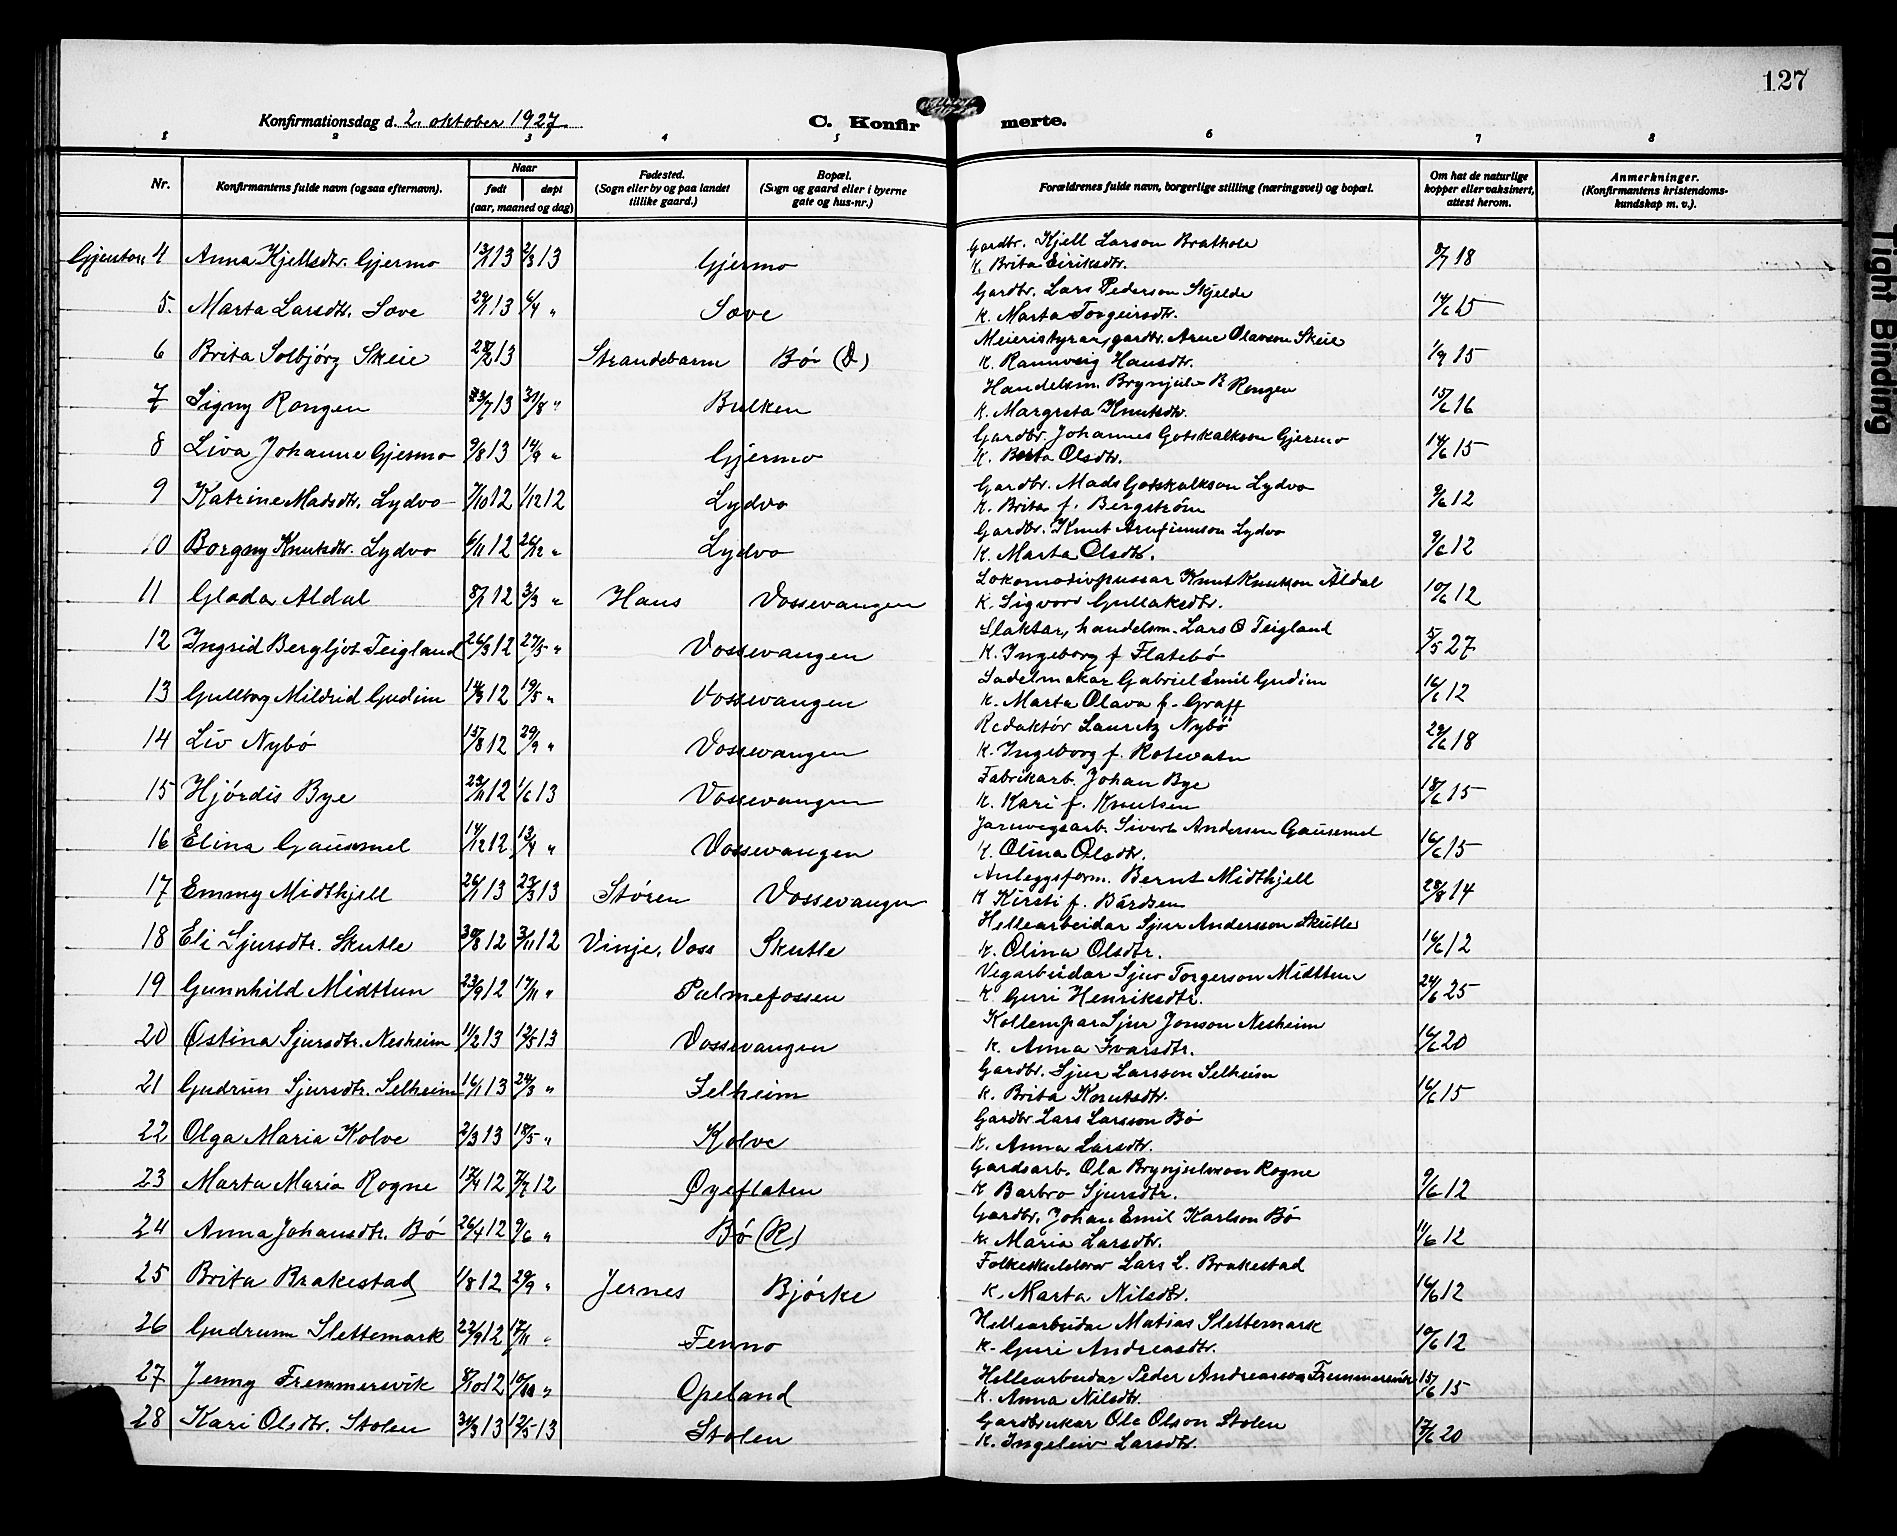 127
Konfirmationsdag d. 2. oktober 1927.
C. Konfirmerte.
1 2 3 4 5 6 7 8
Nr.
Konfirmantens fulde navn (ogsaa efternavn).
Naar
født døpt
(aar, maaned og dag)
Fødested.
(Sogn eller by og paa landet
tillike gaard.)
Bopæl.
(Sogn og gaard eller i byerne
gate og hus-nr.)
Forældrenes fulde navn, borgerlige stilling (næringsvei) og bopæl.
Om hat de naturlige
kopper eller vaksinert,
attest herom.
Anmerkninger.
(Konfirmantens kristendoms-
kundskap m. v.).
Gjentor 4 Anna Kjellsdtr. Gjermo 13/1 13 2/3 13 Gjermo Gardbr. Kjell Larson Brathole
K. Brita Eiriksdtr. 8/7 18
5. Marta Larsdtr. Sove 29/1 13 6/4 " Sove Gardbr. Lars Pederson Skjelde
K. Marta Torgeirsdtr. 14/6 15
6 Brita Solbjørg Skeie 28/2 13 Strandebarm Bø (D) Meieristyrar, gardbr. Arne Olavson Skeie
K. Rannveig Hansdtr. 1/9 15
7 Signy Rongen 23/7 13 31/8 " Bulken Handelsm. Brynjulv B Rongen
K. Margreta Knutsdtr. 15/6 16
8 Liva Johanne Gjermo 9/8 13 14/9 " Gjermo Gardbr. Johannes Gotskalkson Gjermo
K. Berta Olsdtr. 14/6 15
9 Katrine Madsdtr. Lydvo 7/10 12 1/12 12 Lydvo Gardbr. Mads Gotskalkson Lydvo
K. Brita f. Bergstrøm 9/6 12
10 Borgny Knutsdtr. Lydvo 6/11 12 26/12 " Lydvo Gardbr. Knut Arnfinnson Lydvo
K. Marta Olsdtr. 9/6 12
11 Glada Aldal 8/1 12 3/3 " Haus Vossevangen Lokomotivpussar Knut Knutson Aldal
K. Sigvor Gullaksdtr. 10/6 12
12 Ingrid Bergljot Teigland 26/3 12 27/5 " Vossevangen Slaktar, handelsm. Lars O Teigland
K. Ingeborg f Flatebø 5/5 27
13 Gullborg Mildrid Gudim 14/3 12 19/5 " Vossevangen Sadelmakar Gabriel Emil Gudim
K. Marta Olava f. Graff 16/6 12
14 Liv Nybø 15/8 12 29/9 " Vossevangen Redaktør Lauritz Nybø
K. Ingeborg f. Rotevatn 29/6 18
15 Hjørdis Bye 23/11 12 1/6 13 Vossevangen Fabrikarb. Johan Bye
K. Kari f. Knutsen 18/6 15
16 Elina Gausemel 14/12 12 13/4 " Vossevangen Jarnvegsarb. Sivert Andersen Gausemel
K. Olina Olsdtr. 16/6 15
17 Emmy Midthjell 26/1 13 23/3 13 Støren Vossevangen Anleggsform. Bernt Midthjell
K Kirsti f. Bårdsen 28/8 14
18 Eli Sjursdtr. Skutle 30/8 12 3/11 12 Vinje, Voss Skutle Hellearbeidar Sjur Andersson Skutle
K. Olina Olsdtr. 16/6 12
19 Gunnhild Midttun 23/9 12 17/11 " Palmefossen Vegarbeidar Sjur Torgerson Midttun
K. Guri Henriksdtr. 24/6 25
20 Østina Sjursdtr. Nesheim 11/2 13 12/5 13 Vossevangen Kollempar Sjur Jonson Nesheim
K. Anna Ivarsdtr. 16/6 20
21 Gudrun Sjursdtr. Selheim 16/1 13 24/3 " Selheim Gardbr. Sjur Larsson Selheim
K. Brita Knutsdtr. 16/6 15
22 Olga Maria Kolve 2/3 13 18/5 " Kolve Gardbr Lars Larsson Bø
K. Anna Larsdtr.
23 Marta Maria Rogne 17/4 12 7/7 12 Øyeflaten Gardsarb. Ola Brynjulvson Rogne
K Barbro Sjursdtr. 9/6 12
24 Anna Johansdtr. Bø 26/4 12 9/6 " Bø (R) Gardbr. Johan Emil Karlson Bø
K. Maria Larsdtr. 11/6 12
25 Brita Brakestad 1/8 12 29/9 " Jernes Bjørke Folkeskulelærar Lars L. Brakestad
K. Marta Nilsdtr. 16/6 12
26 Gudrunn Slettemark 22/9 12 17/11 " Fenno Hellearbeidar Matias Slettemark
K. Guri Andreasdtr. 10/6 12
27 Jenny Fremmersvik 8/10 12 10/11 " Opeland Hellearbeidar Peder Andreasson Fremmersvik
K. Anna Nilsdtr. 15/6 15
28 Kari Olsdtr. Stolen 31/3 13 12/5 13 Stolen Gardbrukar Ole Olson Stolen
K. Ingeleiv Larsdtr. 17/6 20
Tight Binding